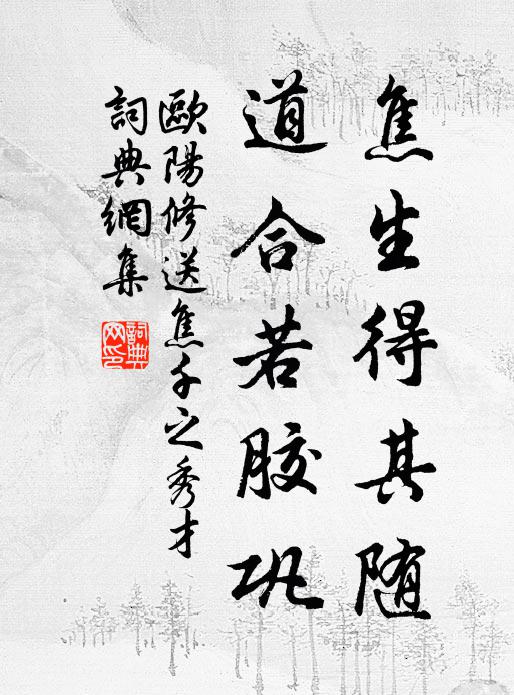 焦生得其随
道合若胶巩
歐陽修送焦千之秀才
詞典網集
詞典
网印